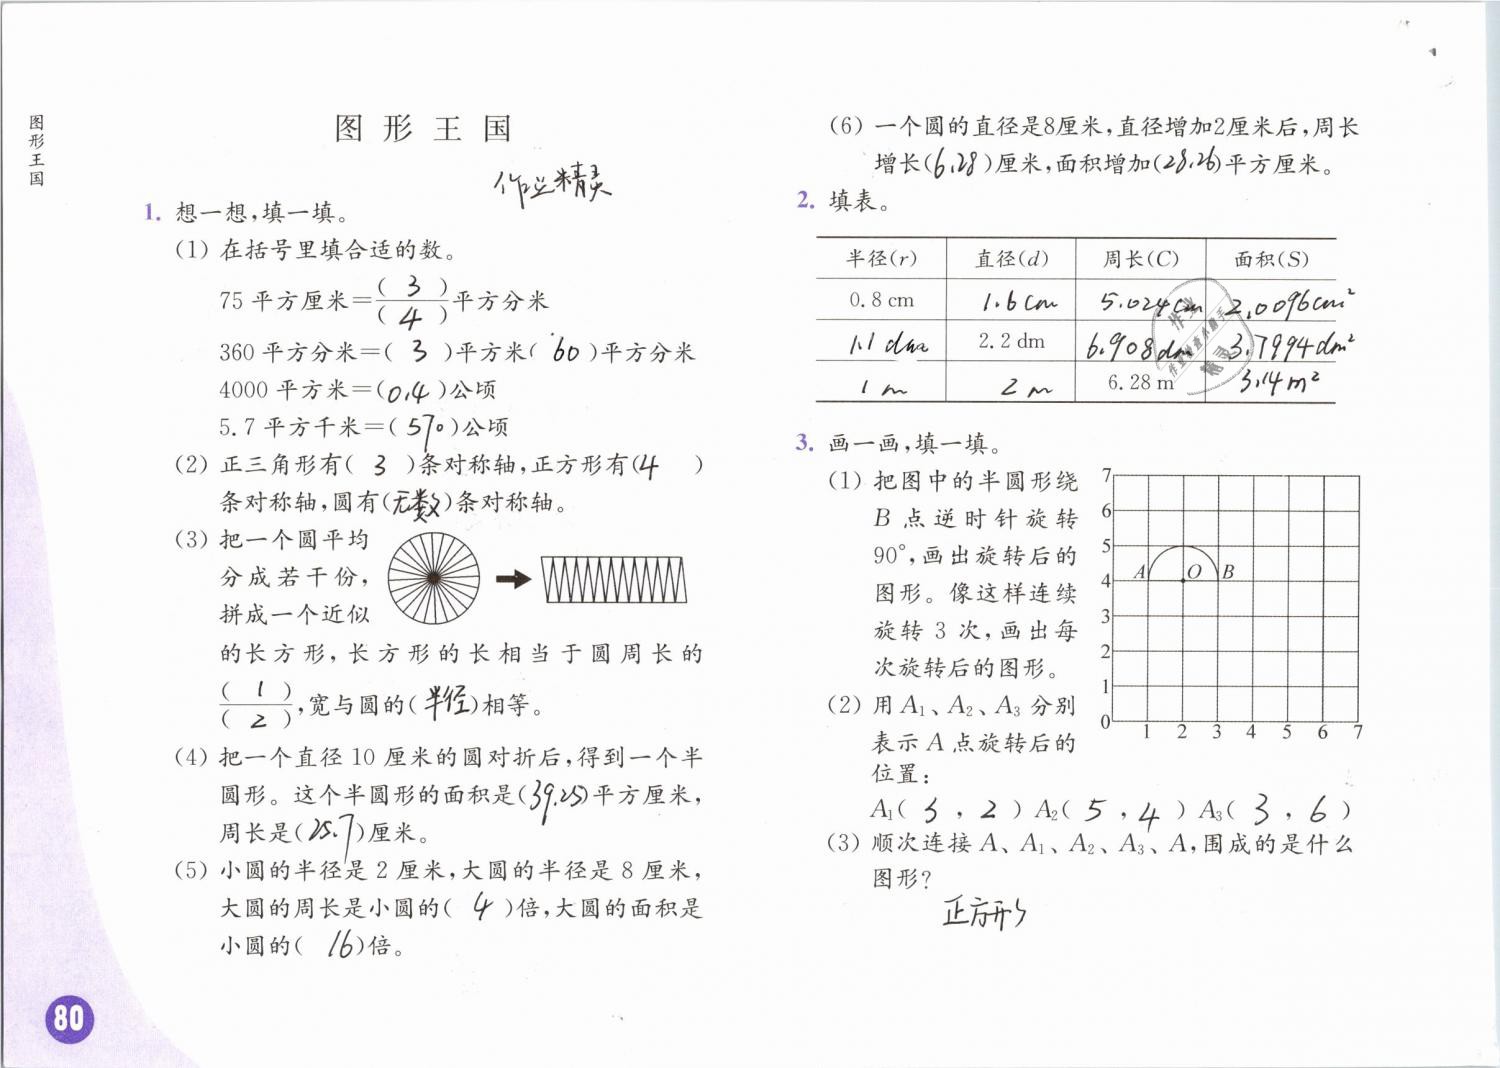 图形王国
图形王国
作业精灵
1. 想一想,填一填。
(1) 在括号里填合适的数。
75平方厘米=(3)/(4)平方分米
360平方分米=(3)平方米(60)平方分米
4000平方米=(0.4)公顷
5.7平方千米=(570)公顷
(2) 正三角形有(3)条对称轴,正方形有(4)
条对称轴,圆有(无数)条对称轴。
(3) 把一个圆平均
分成若干份,
拼成一个近似
的长方形,长方形的长相当于圆周长的
(1)/(2),宽与圆的(半径)相等。
(4) 把一个直径10厘米的圆对折后,得到一个半
圆形。这个半圆形的面积是(39.25)平方厘米,
周长是(25.7)厘米。
(5) 小圆的半径是2厘米,大圆的半径是8厘米,
大圆的周长是小圆的(4)倍,大圆的面积是
小圆的(16)倍。
80
(6) 一个圆的直径是8厘米,直径增加2厘米后,周长
增长(6.28)厘米,面积增加(28.26)平方厘米。
2. 填表。
半径(r) 直径(d) 周长(C) 面积(S)
0.8 cm 1.6cm 5.024cm 2.0096cm²
1.1dm 2.2 dm 6.908dm 3.7994dm²
1m 2m 6.28 m 3.14m²
作业
精灵
3. 画一画,填一填。
(1) 把图中的半圆形绕
B点逆时针旋转
90°,画出旋转后的
图形。像这样连续
旋转3次,画出每
次旋转后的图形。
(2) 用A₁、A₂、A₃分别
表示A点旋转后的
位置:
7
6
5
4 A O B
3
2
1
0 1 2 3 4 5 6 7
A₁(3,2) A₂(5,4) A₃(3,6)
(3) 顺次连接A、A₁、A₂、A₃、A,围成的是什么
图形?
正方形